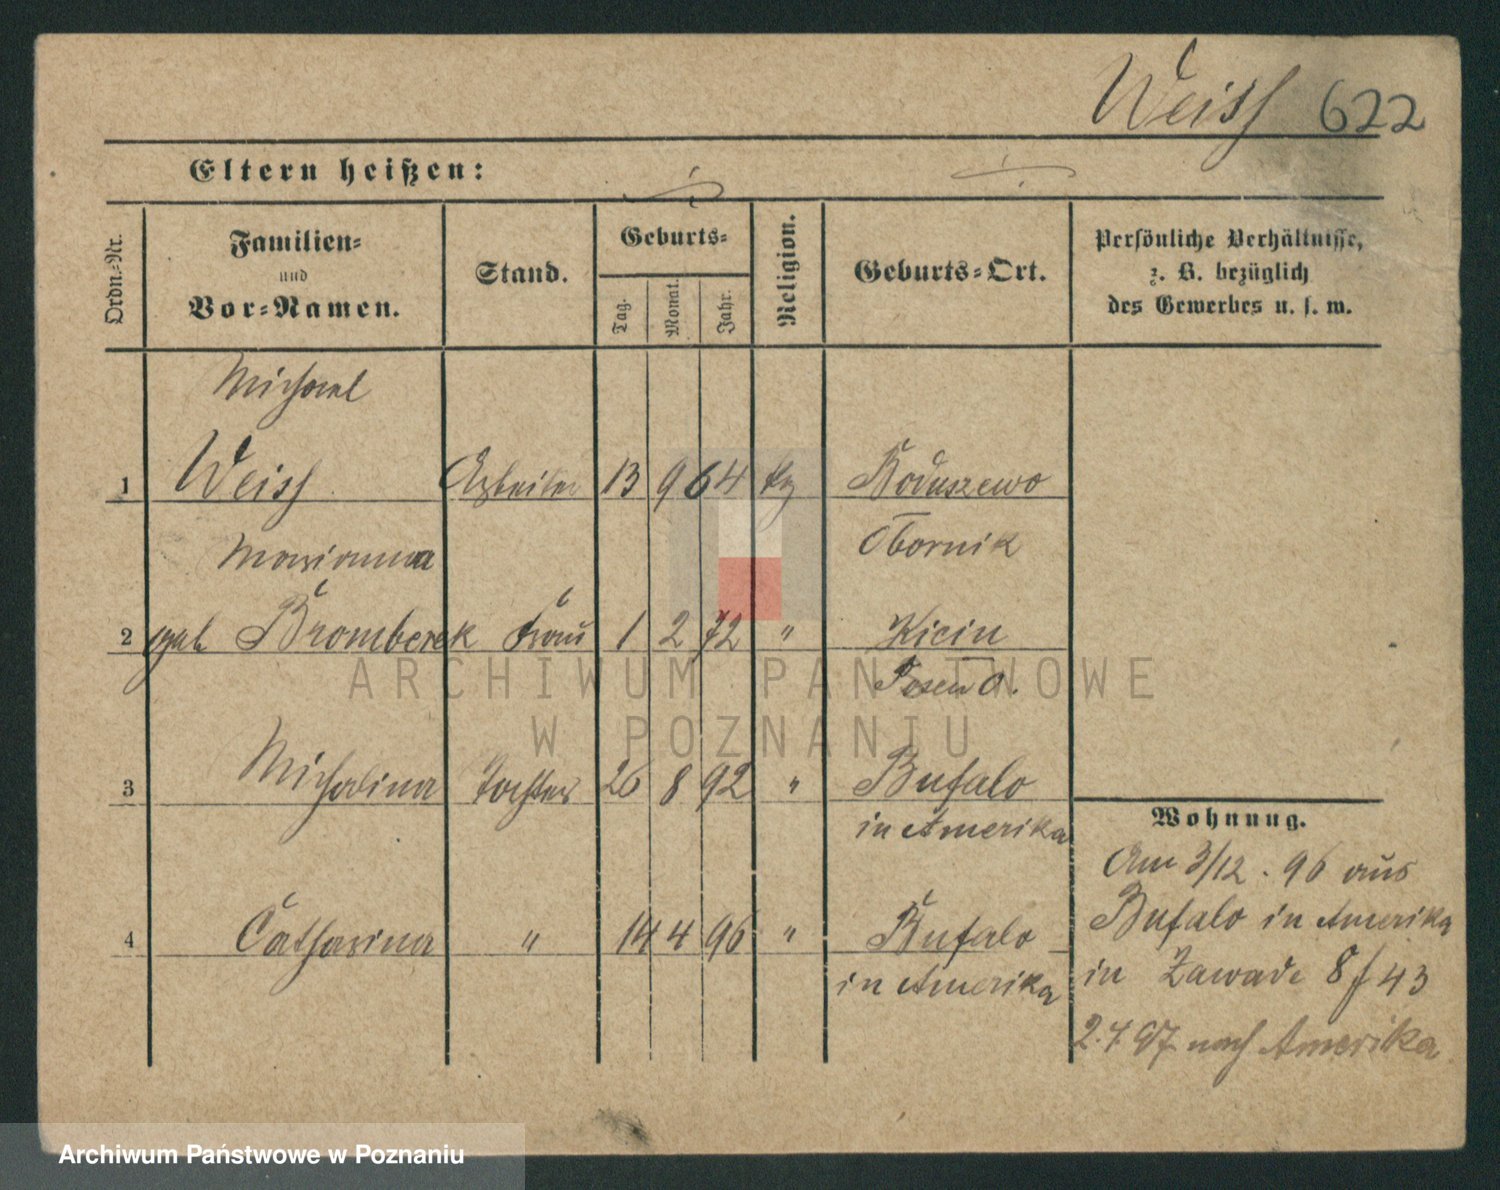 Weiss 622
Eltern heißen:
Ordn.-Nr.
Familien-
und
Vor-Namen.
Stand.
Geburts-
Tag.
Monat.
Jahr.
Religion.
Geburts-Ort.
Persönliche Verhältnisse,
z. B. bezüglich
des Gewerbes u. s. w.
Michael
1 Weiss Arbeiter 13 9 64 kg Boduszewo
Marianna Obornik
2 geb. Bromberek Frau 1 2 72 " Kicin
Posen O.
3 Michalina Tochter 26 8 92 " Bufalo
in Amerika
4 Catharina " 14 4 96 " Bufalo
in Amerika
Wohnung.
Am 3/12. 96 aus
Bufalo in Amerika
in Zawade 8 f 43
2.4 97 nach Amerika
ARCHIWUM PAŃSTWOWE
W POZNANIU
Archiwum Państwowe w Poznaniu